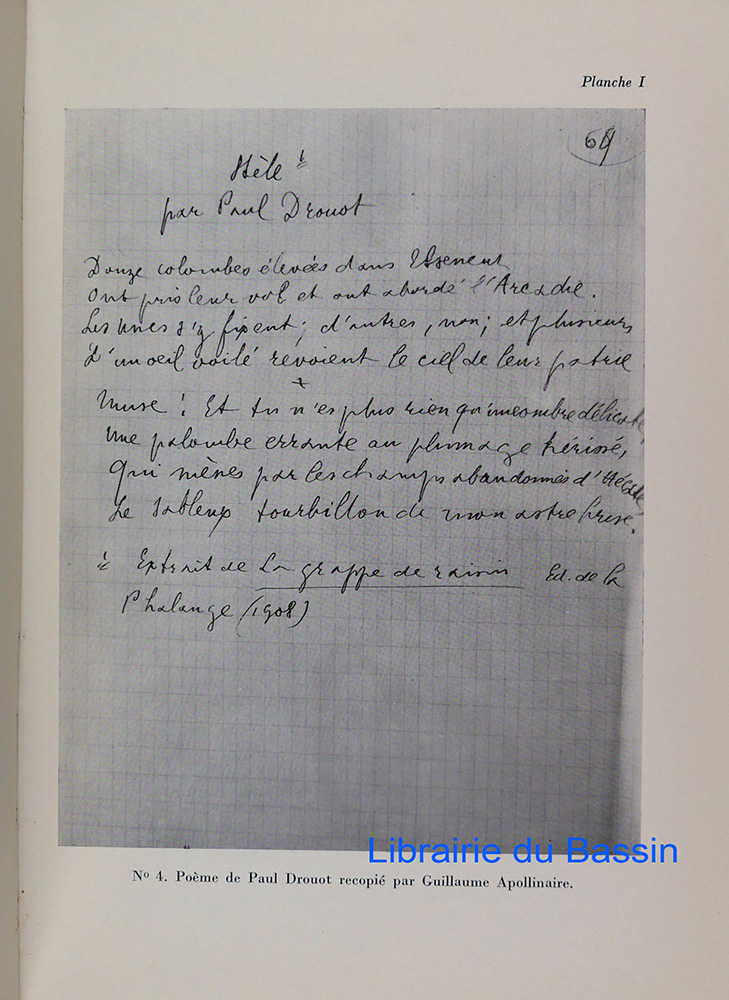 Planche I
64
Stèle 1
par Paul Drouot
Douze colombes élevées dans
Ont pris leur vol et ont abordé l'Arcadie.
Les unes s'y fixent ; d'autres, non ; et plusieurs
D'un oeil voilé revoient le ciel de leur patrie
+
Muse ! Et tu n'es plus rien qu'une ombre délicate,
Une palombe errante au plumage hérissé,
Qui mènes par les champs abandonnés d'Hécate
Le tourbillon de mon astre brisé.
1 Extrait de La grappe de raisin Ed. de la
Phalange (1908)
Librairie du Bassin
No 4. Poème de Paul Drouot recopié par Guillaume Apollinaire.